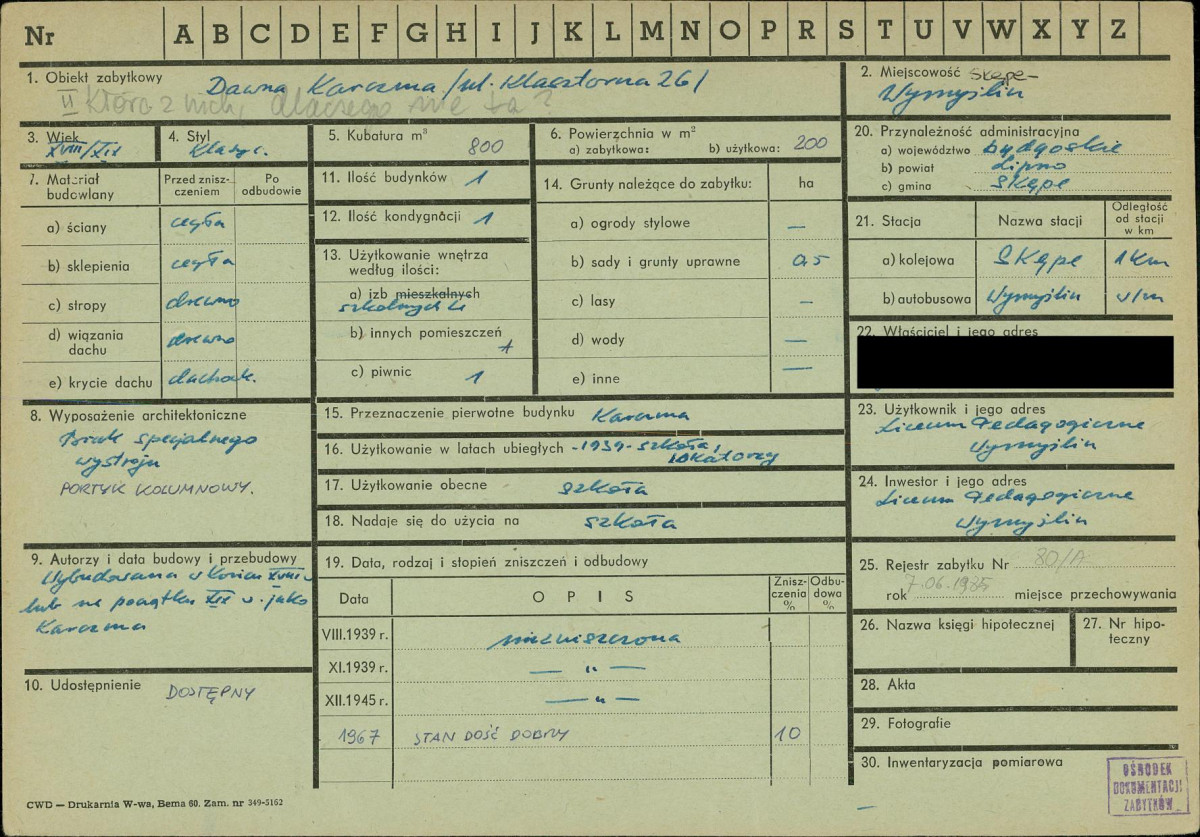 Nr A B C D E F G H I J K L M N O P R S T U V W X Y Z
1. Obiekt zabytkowy Dawna Karczma /ul. Klasztorna 26/
II Która z nich, dlaczego nie ta?
2. Miejscowość Skępe-
Wymyślin
3. Wiek
XVIII/XIX
4. Styl
klasyc.
5. Kubatura m³
800
6. Powierzchnia w m²
a) zabytkowa: b) użytkowa: 200
20. Przynależność administracyjna
a) województwo bydgoskie
b) powiat Lipno
c) gmina Skępe
7. Materiał budowlany
Przed zniszczeniem
Po odbudowie
a) ściany cegła
b) sklepienia cegła
c) stropy drewno
d) wiązania dachu drewno
e) krycie dachu dachówk.
11. Ilość budynków 1
12. Ilość kondygnacji 1
13. Użytkowanie wnętrza
według ilości:
a) izb mieszkalnych
szkolnych
b) innych pomieszczeń
1
c) piwnic 1
14. Grunty należące do zabytku: ha
a) ogrody stylowe —
b) sady i grunty uprawne 0,5
c) lasy —
d) wody —
e) inne —
21. Stacja Nazwa stacji Odległość od stacji w km
a) kolejowa Skępe 1 km
b) autobusowa Wymyślin v/m
22. Właściciel i jego adres
8. Wyposażenie architektoniczne
Brak specjalnego
wystroju
PORTYK KOLUMNOWY.
15. Przeznaczenie pierwotne budynku Karczma
16. Użytkowanie w latach ubiegłych -1939- szkoła,
lokatorzy
17. Użytkowanie obecne szkoła
18. Nadaje się do użycia na szkoła
23. Użytkownik i jego adres
Liceum Pedagogiczne
Wymyślin
24. Inwestor i jego adres
Liceum Pedagogiczne
Wymyślin
9. Autorzy i data budowy i przebudowy
Wybudowana w końcu XVIII w
lub na początku XIX w. jako
Karczma
10. Udostępnienie DOSTĘPNY
19. Data, rodzaj i stopień zniszczeń i odbudowy
Data OPIS Zniszczenia % Odbudowa %
VIII.1939 r. niezniszczona
XI.1939 r. — „ —
XII.1945 r. — „ —
1967 STAN DOŚĆ DOBRY 10
25. Rejestr zabytku Nr 80/A
rok 7.06.1985 miejsce przechowywania
26. Nazwa księgi hipotecznej
27. Nr hipoteczny
28. Akta
29. Fotografie
30. Inwentaryzacja pomiarowa
OŚRODEK
DOKUMENTACJI
ZABYTKÓW
CWD — Drukarnia W-wa, Bema 60. Zam. nr 349-5162